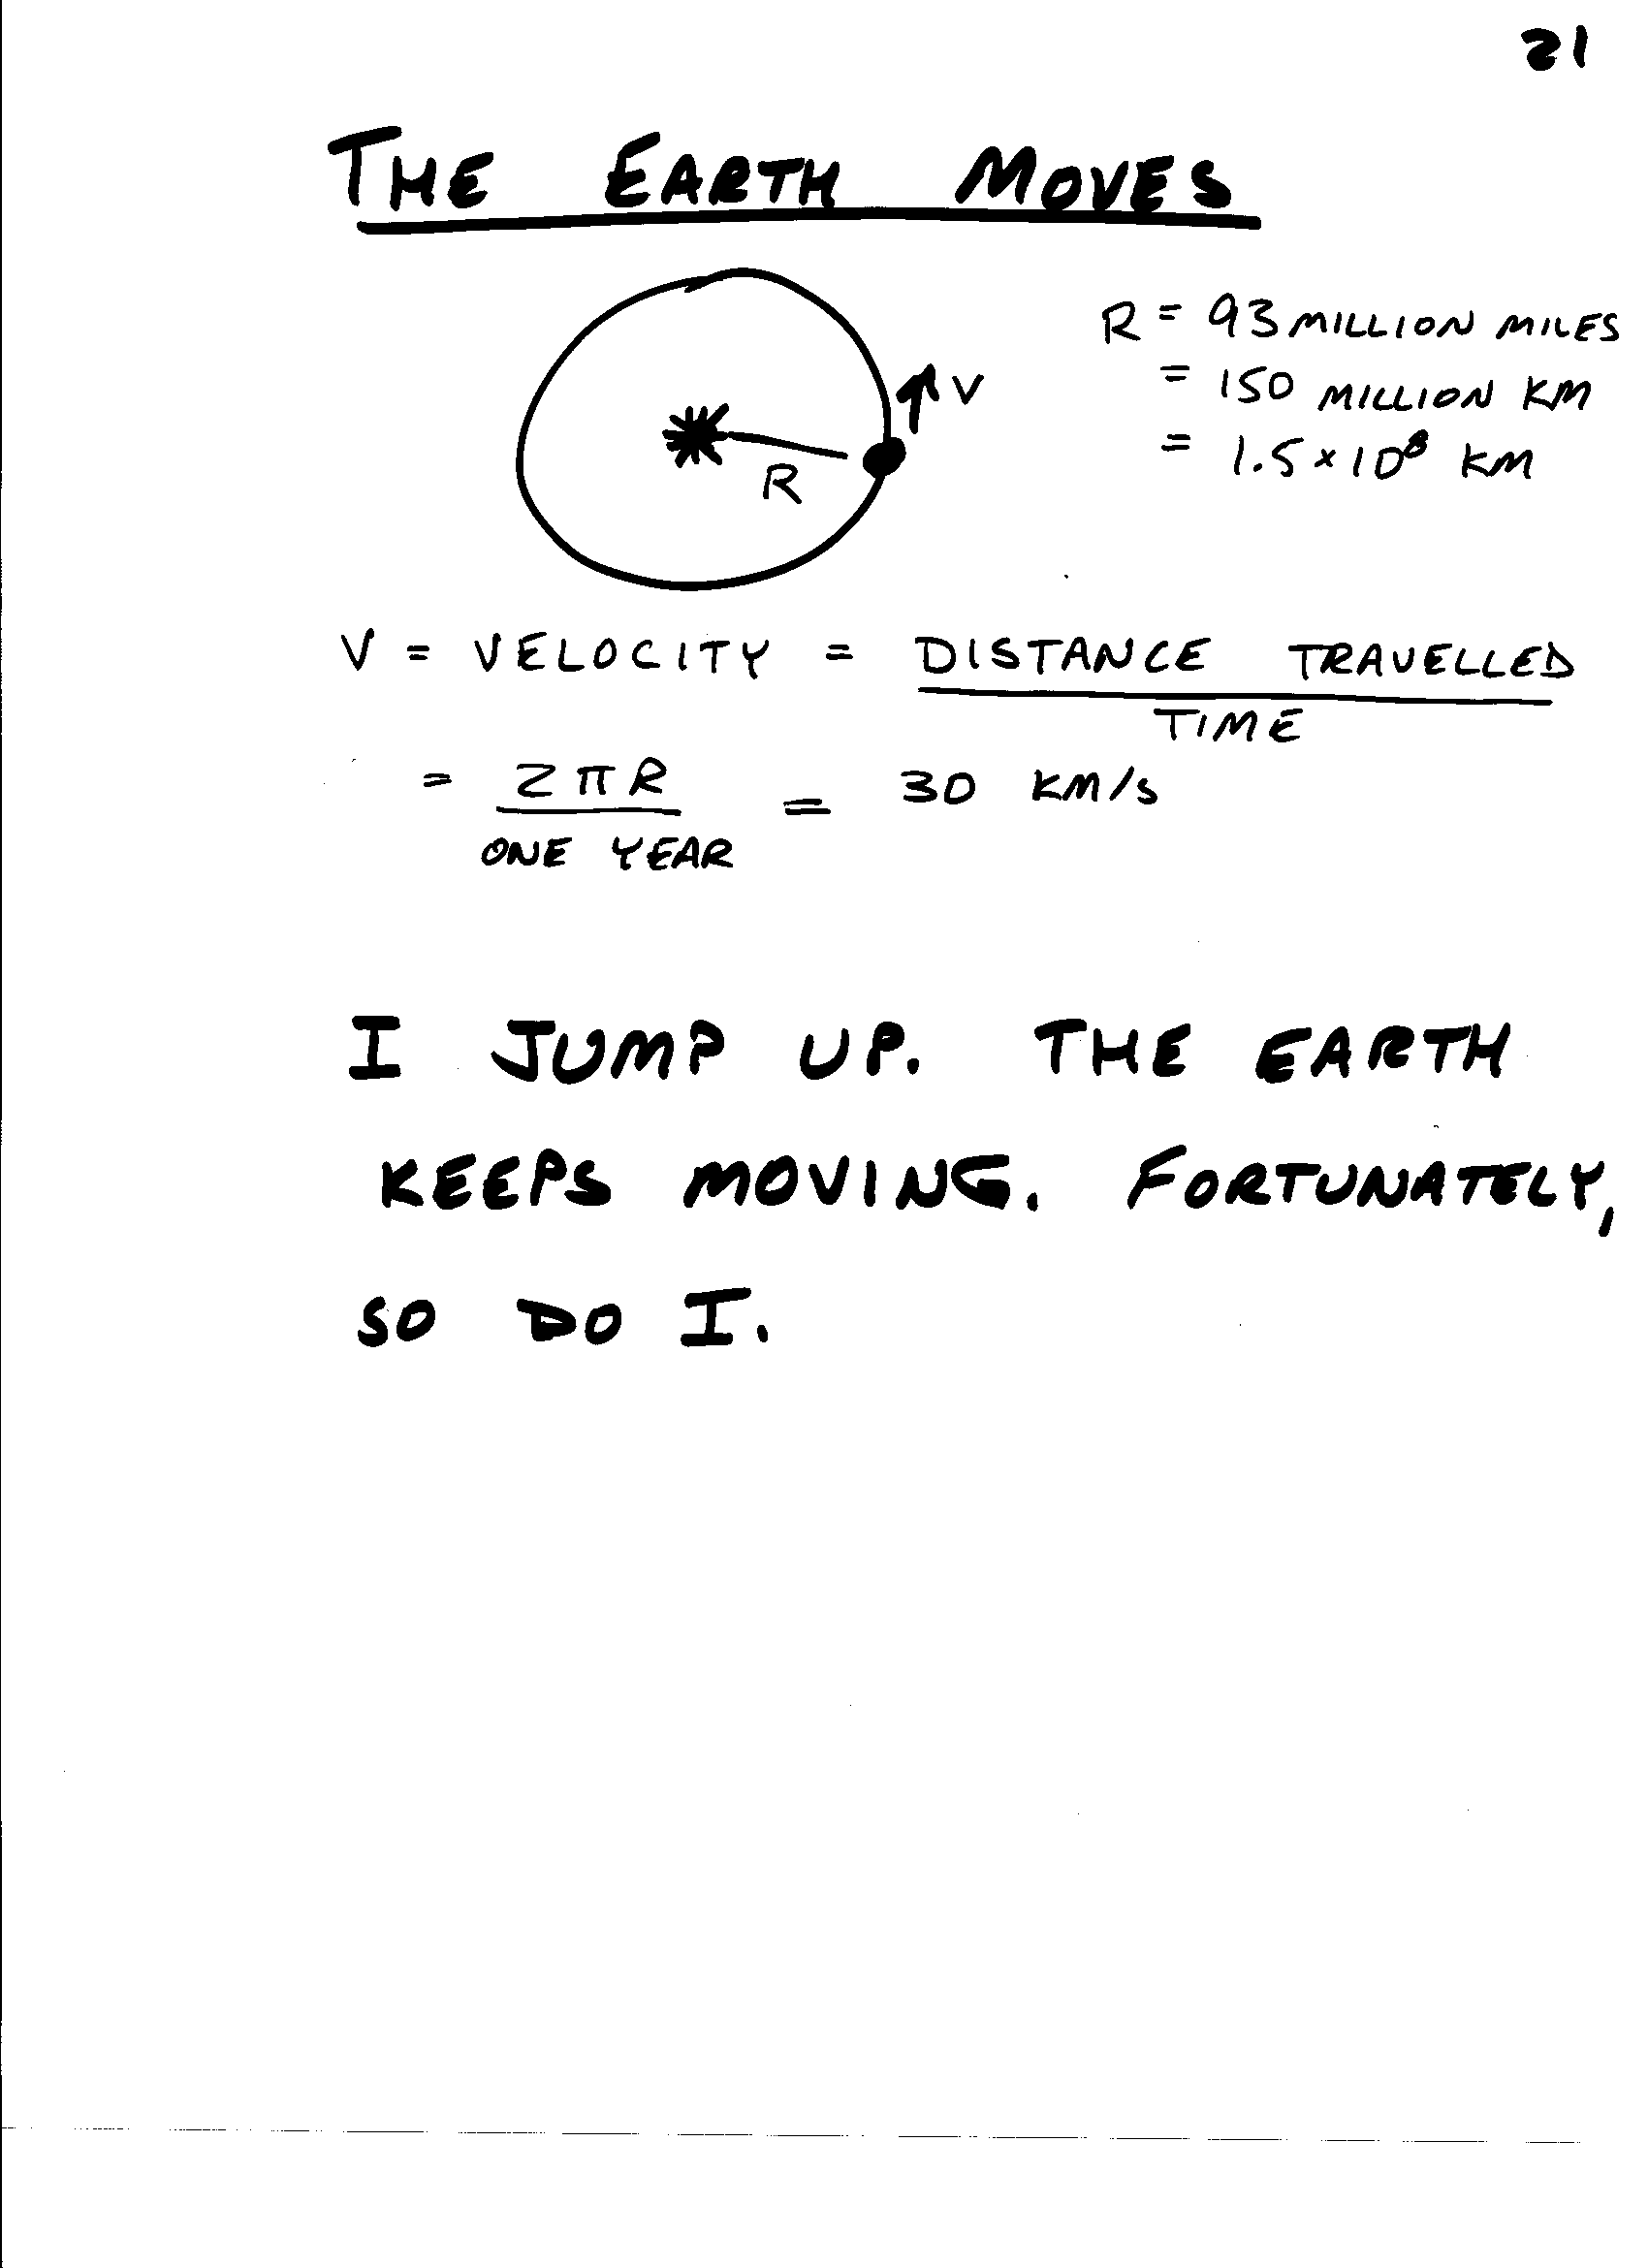 21
THE EARTH MOVES
R = 93 MILLION MILES
= 150 MILLION KM
= 1.5 × 10⁸ KM
V
R
V = VELOCITY = DISTANCE TRAVELLED
TIME
= 2πR = 30 KM/S
ONE YEAR
I JUMP UP. THE EARTH
KEEPS MOVING. FORTUNATELY,
SO DO I.